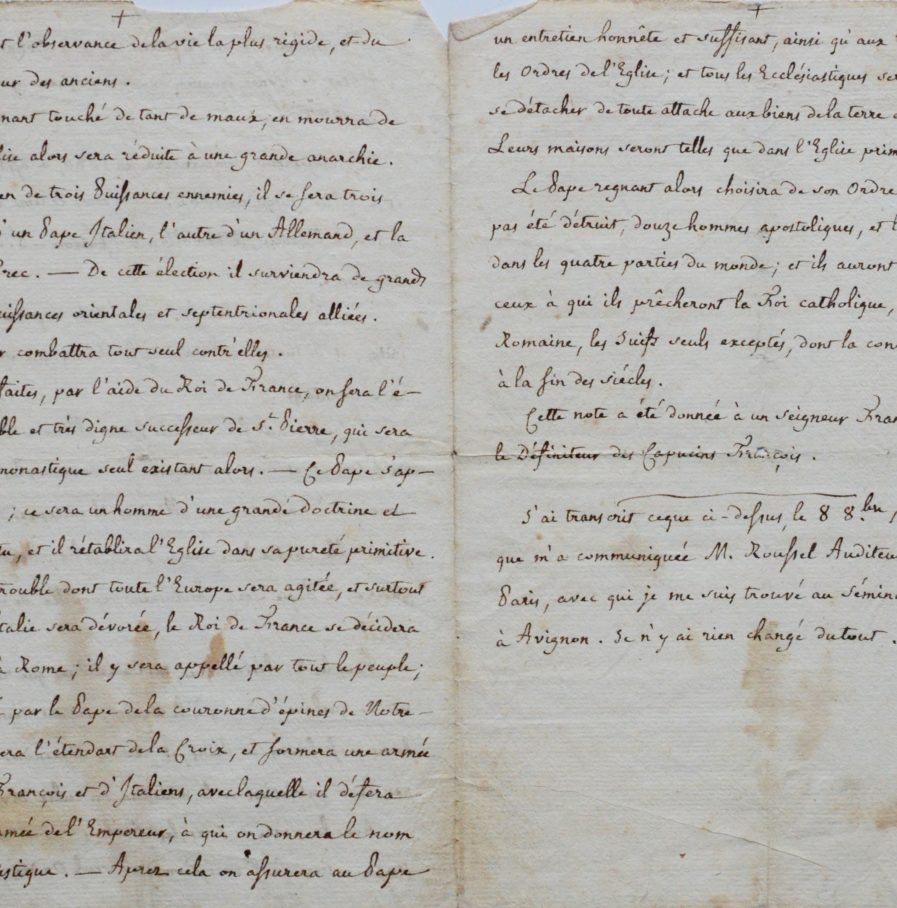 +
l'observance de la vie la plus rigide, et du
ur des anciens.
nant touché de tant de maux, en mourra de
lise alors sera réduite à une grande anarchie.
en de trois Puissances ennemies, il se fera trois
d'un Pape Italien, l'autre d'un Allemand, et la
Grec. — De cette élection il surviendra de grands
uissances orientales et septentrionales alliées.
combattra tout seul contr'elles.
faites, par l'aide du Roi de France, on fera l'é-
ble et très digne successeur de St. Pierre, qui sera
monastique seul existant alors. — Ce Pape s'ap-
; ce sera un homme d'une grande doctrine et
tu, et il rétablira l'Eglise dans sa pureté primitive.
trouble dont toute l'Europe sera agitée, et surtout
talie sera dévorée, le Roi de France se décidera
à Rome; il y sera appellé par tout le peuple;
par le Pape de la couronne d'épines de Notre-
era l'étendart de la Croix, et formera une armée
François et d'Italiens, avec laquelle il défera
rmée de l'Empereur, à qui on donnera le nom
astique. — Aprez cela on assurera au Pape
+
un entretien honnête et suffisant, ainsi qu'aux
les Ordres de l'Eglise; et tous les Ecclésiastiques se
se détacher de toute attache aux biens de la terre
Leurs maisons seront telles que dans l'Eglise prim
Le Pape regnant alors choisira de son Ordre
pas été détruit, douze hommes apostoliques, et l
dans les quatre parties du monde; et ils auront
ceux à qui ils prêcheront la Foi catholique,
Romaine, les Juifs seuls exceptés, dont la con
à la fin des siécles.
Cette note a été donnée à un seigneur Fran
le Définiteur des Capucins François.
J'ai transcrit ce que ci-dessus, le 8 8.bre,
que m'a communiquée M. Roussel Auditeu
Paris, avec qui je me suis trouvé au sémin
à Avignon. Je n'y ai rien changé du tout.